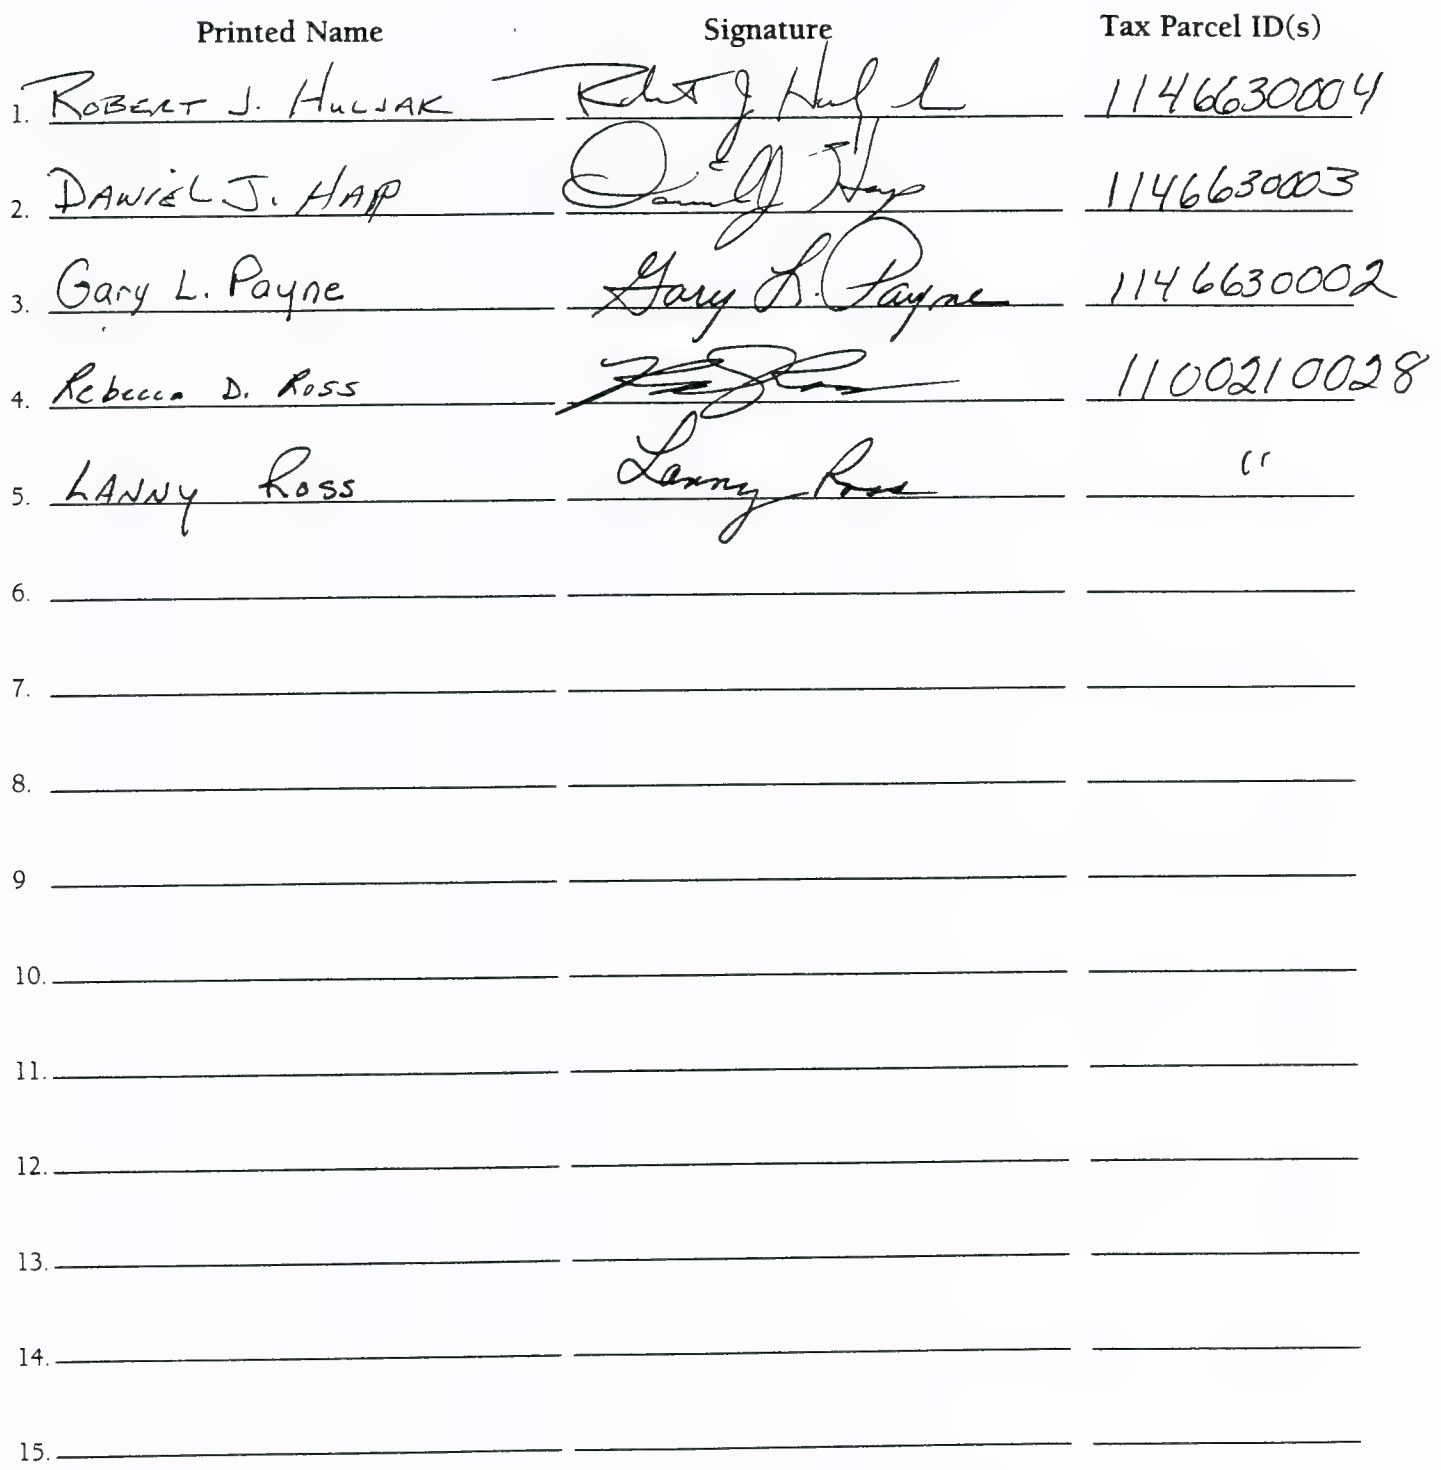 Printed Name Signature Tax Parcel ID(s)
1. ROBERT J. HULJAK Robert J Huljak 1146630004
2. DANIEL J. HAPP Daniel J Happ 1146630003
3. Gary L. Payne Gary L. Payne 1146630002
4. Rebecca D. Ross 1100210028
5. LANNY ROSS Lanny Ross "
6.
7.
8.
9
10.
11.
12.
13.
14.
15.